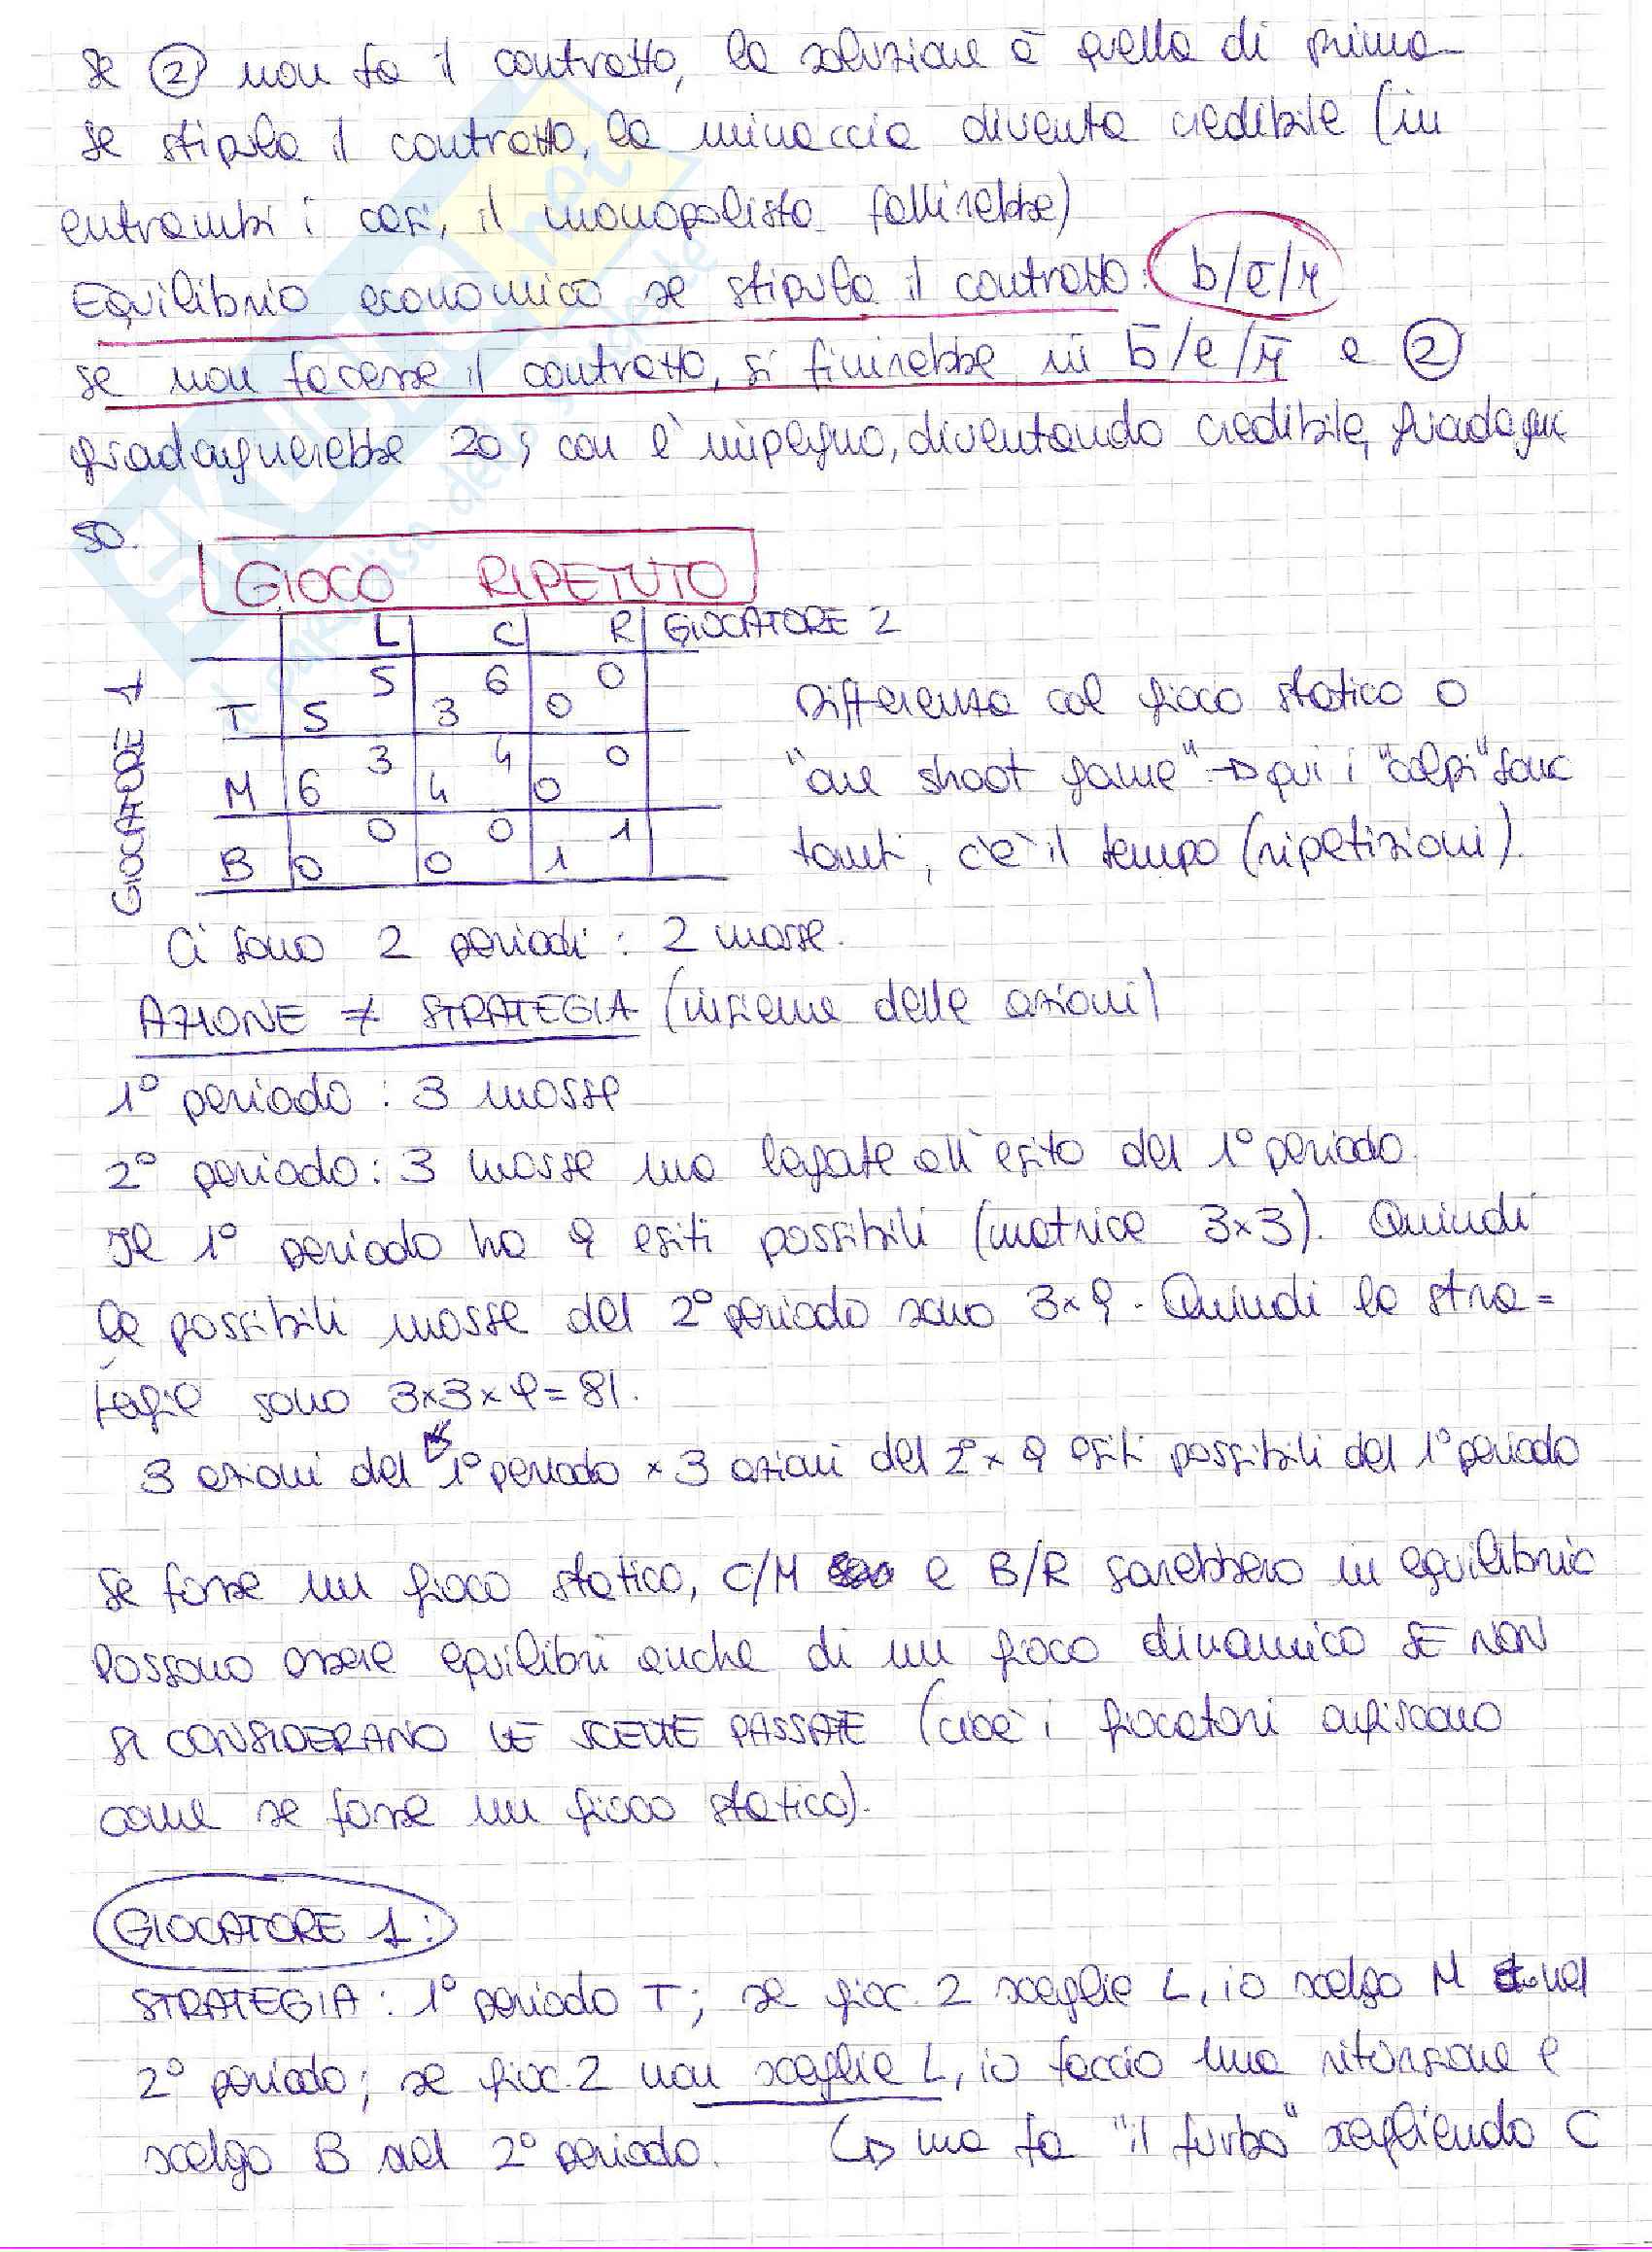 Se ② non fa il contratto, la soluzione è quella di prima
Se stipula il contratto, la minaccia diventa credibile (in
entrambi i casi, il monopolista fallirebbe)
Equilibrio economico se stipula il contratto: b/e̅/r
se non facesse il contratto, si finirebbe in b̅/e/r̅ e ②
guadagnerebbe 20; con l'impegno, diventando credibile, guadagna
50.
GIOCO RIPETUTO
L C R GIOCATORE 2
GIOCATORE 1
5 6 0
T 5 3 0
3 4 0
M 6 4 0
0 0 1
B 0 0 1
Differenza col gioco statico o
"one shoot game" → qui i "colpi" sono
tanti, c'è il tempo (ripetizioni).
Ci sono 2 periodi: 2 mosse.
AZIONE ≠ STRATEGIA (insieme delle azioni)
1° periodo: 3 mosse
2° periodo: 3 mosse ma legate all'esito del 1° periodo.
Il 1° periodo ha 9 esiti possibili (matrice 3×3). Quindi
le possibili mosse del 2° periodo sono 3×9. Quindi le stra=
tegie sono 3×3×9=81.
3 azioni del 1° periodo × 3 azioni del 2° × 9 esiti possibili del 1° periodo
Se fosse un gioco statico, C/M e B/R sarebbero in equilibrio
Possono essere equilibri anche di un gioco dinamico SE NON
SI CONSIDERANO LE SCELTE PASSATE (cioè i giocatori agiscono
come se fosse un gioco statico).
GIOCATORE 1:
STRATEGIA: 1° periodo T; se gioc. 2 sceglie L, io scelgo M nel
2° periodo; se gioc. 2 non sceglie L, io faccio una ritorsione e
scelgo B nel 2° periodo. ↳ ma fa "il furbo" scegliendo C